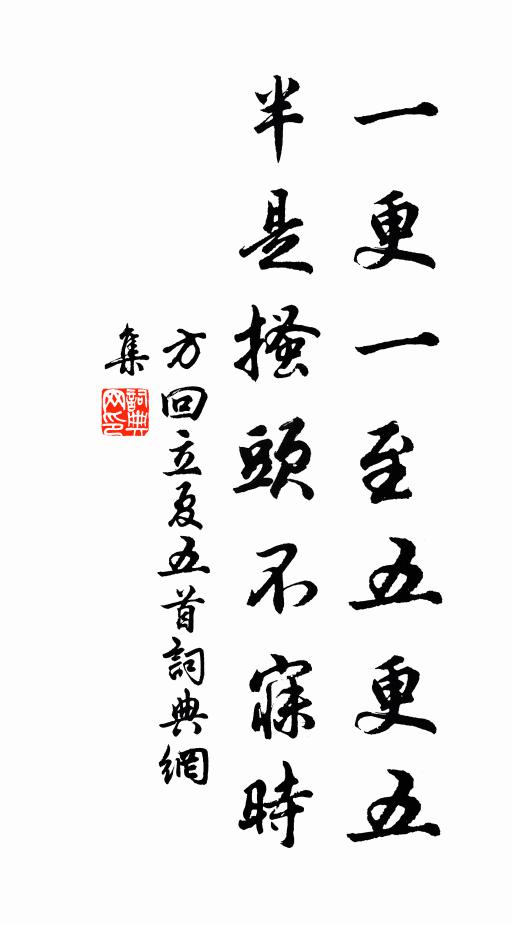 一更一至五更五
半是搔頭不寐時
方回立夏五首詞典網
集
詞典
网印